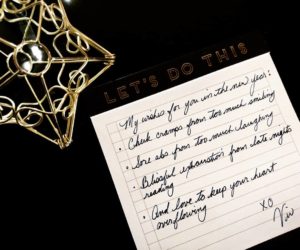 LET'S DO THIS
My wishes for you in the new year:
• Cheek cramps from too much smiling
• Sore abs from too much laughing
• Blissful exhaustion from late nights
reading
• And love to keep your heart
overflowing
XO
Viv